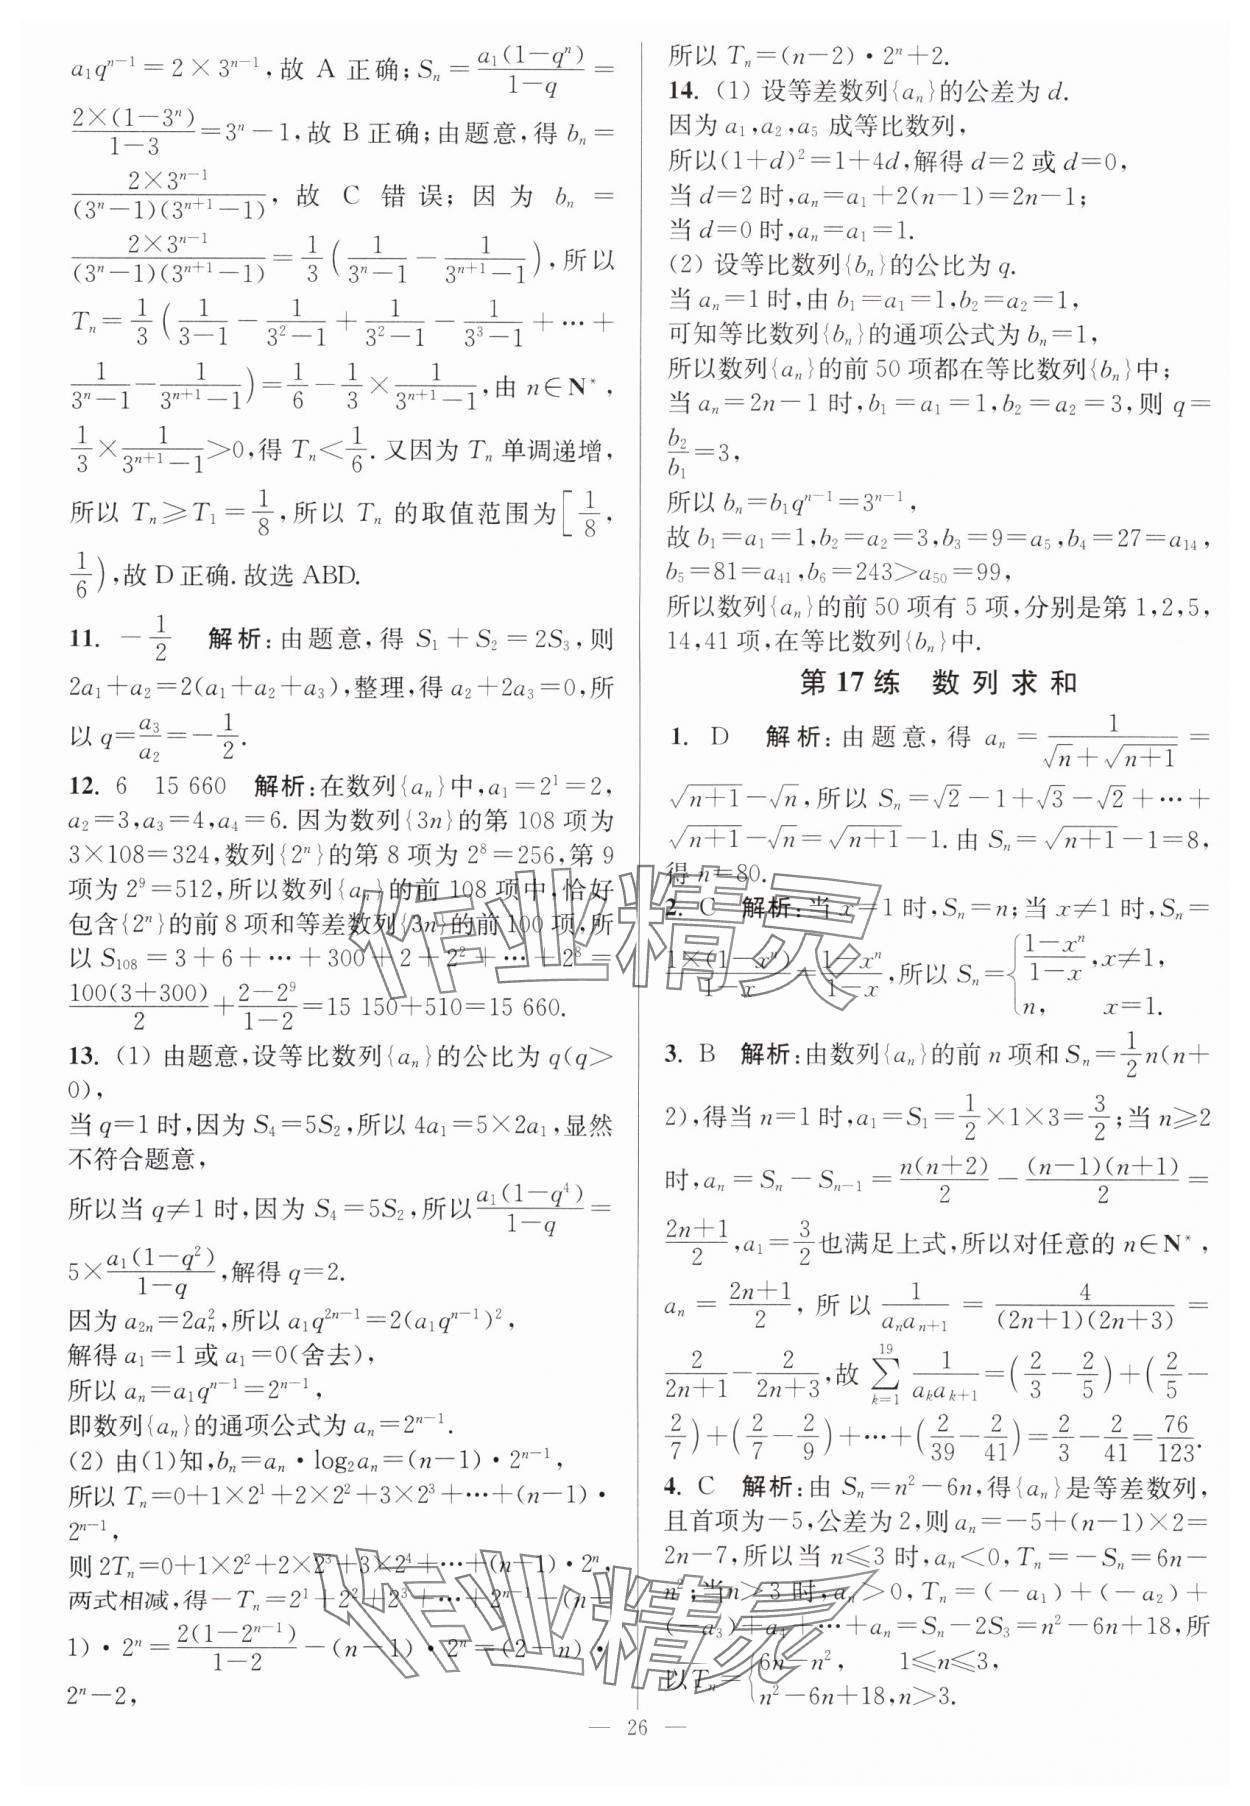 a₁qⁿ⁻¹=2×3ⁿ⁻¹,故 A 正确;Sₙ=\frac{a₁(1-qⁿ)}{1-q}=
\frac{2×(1-3ⁿ)}{1-3}=3ⁿ-1,故 B 正确;由题意,得 bₙ=
\frac{2×3ⁿ⁻¹}{(3ⁿ-1)(3ⁿ⁺¹-1)},故 C 错误;因为 bₙ=
\frac{2×3ⁿ⁻¹}{(3ⁿ-1)(3ⁿ⁺¹-1)}=\frac{1}{3}(\frac{1}{3ⁿ-1}-\frac{1}{3ⁿ⁺¹-1}),所以
Tₙ=\frac{1}{3}(\frac{1}{3-1}-\frac{1}{3²-1}+\frac{1}{3²-1}-\frac{1}{3³-1}+⋯+
\frac{1}{3ⁿ-1}-\frac{1}{3ⁿ⁺¹-1})=\frac{1}{6}-\frac{1}{3}×\frac{1}{3ⁿ⁺¹-1},由 n∈N*,
\frac{1}{3}×\frac{1}{3ⁿ⁺¹-1}>0,得 Tₙ<\frac{1}{6}.又因为 Tₙ 单调递增,
所以 Tₙ≥T₁=\frac{1}{8},所以 Tₙ 的取值范围为[\frac{1}{8},
\frac{1}{6}),故 D 正确.故选 ABD.
11. -\frac{1}{2} 解析:由题意,得 S₁+S₂=2S₃,则
2a₁+a₂=2(a₁+a₂+a₃),整理,得 a₂+2a₃=0,所
以 q=\frac{a₃}{a₂}=-\frac{1}{2}.
12. 6 15 660 解析:在数列{aₙ}中,a₁=2¹=2,
a₂=3,a₃=4,a₄=6.因为数列{3n}的第 108 项为
3×108=324,数列{2ⁿ}的第 8 项为 2⁸=256,第 9
项为 2⁹=512,所以数列{aₙ}的前 108 项中,恰好
包含{2ⁿ}的前 8 项和等差数列{3n}的前 100 项,所
以 S₁₀₈=3+6+⋯+300+2+2²+⋯+2⁸=
\frac{100(3+300)}{2}+\frac{2-2⁹}{1-2}=15 150+510=15 660.
13. (1) 由题意,设等比数列{aₙ}的公比为 q(q>
0),
当 q=1 时,因为 S₄=5S₂,所以 4a₁=5×2a₁,显然
不符合题意,
所以当 q≠1 时,因为 S₄=5S₂,所以\frac{a₁(1-q⁴)}{1-q}=
5×\frac{a₁(1-q²)}{1-q},解得 q=2.
因为 a₂ₙ=2aₙ²,所以 a₁q²ⁿ⁻¹=2(a₁qⁿ⁻¹)²,
解得 a₁=1 或 a₁=0(舍去),
所以 aₙ=a₁qⁿ⁻¹=2ⁿ⁻¹,
即数列{aₙ}的通项公式为 aₙ=2ⁿ⁻¹.
(2) 由(1)知,bₙ=aₙ·log₂aₙ=(n-1)·2ⁿ⁻¹,
所以 Tₙ=0+1×2¹+2×2²+3×2³+⋯+(n-1)·
2ⁿ⁻¹,
则 2Tₙ=0+1×2²+2×2³+3×2⁴+⋯+(n-1)·2ⁿ,
两式相减,得-Tₙ=2¹+2²+2³+⋯+2ⁿ⁻¹-(n-
1)·2ⁿ=\frac{2(1-2ⁿ⁻¹)}{1-2}-(n-1)·2ⁿ=(2-n)·
2ⁿ-2,
所以 Tₙ=(n-2)·2ⁿ+2.
14. (1) 设等差数列{aₙ}的公差为 d.
因为 a₁,a₂,a₅ 成等比数列,
所以(1+d)²=1+4d,解得 d=2 或 d=0,
当 d=2 时,aₙ=a₁+2(n-1)=2n-1;
当 d=0 时,aₙ=a₁=1.
(2) 设等比数列{bₙ}的公比为 q.
当 aₙ=1 时,由 b₁=a₁=1,b₂=a₂=1,
可知等比数列{bₙ}的通项公式为 bₙ=1,
所以数列{aₙ}的前 50 项都在等比数列{bₙ}中;
当 aₙ=2n-1 时,b₁=a₁=1,b₂=a₂=3,则 q=
\frac{b₂}{b₁}=3,
所以 bₙ=b₁qⁿ⁻¹=3ⁿ⁻¹,
故 b₁=a₁=1,b₂=a₂=3,b₃=9=a₅,b₄=27=a₁₄,
b₅=81=a₄₁,b₆=243>a₅₀=99,
所以数列{aₙ}的前 50 项有 5 项,分别是第 1,2,5,
14,41 项,在等比数列{bₙ}中.
第 17 练 数列求和
1. D 解析:由题意,得 aₙ=\frac{1}{√n+√(n+1)}=
√(n+1)-√n,所以 Sₙ=√2-1+√3-√2+⋯+
√(n+1)-√n=√(n+1)-1.由 Sₙ=√(n+1)-1=8,
得 n=80.
2. C 解析:当 x=1 时,Sₙ=n;当 x≠1 时,Sₙ=
\frac{1×(1-xⁿ)}{1-x}=\frac{1-xⁿ}{1-x},所以 Sₙ={\frac{1-xⁿ}{1-x},x≠1,
n, x=1.
3. B 解析:由数列{aₙ}的前 n 项和 Sₙ=\frac{1}{2}n(n+
2),得当 n=1 时,a₁=S₁=\frac{1}{2}×1×3=\frac{3}{2};当 n≥2
时,aₙ=Sₙ-Sₙ₋₁=\frac{n(n+2)}{2}-\frac{(n-1)(n+1)}{2}=
\frac{2n+1}{2},a₁=\frac{3}{2}也满足上式,所以对任意的 n∈N*,
aₙ=\frac{2n+1}{2},所以\frac{1}{aₙaₙ₊₁}=\frac{4}{(2n+1)(2n+3)}=
\frac{2}{2n+1}-\frac{2}{2n+3},故\sum_{k=1}^{19}\frac{1}{aₖaₖ₊₁}=(\frac{2}{3}-\frac{2}{5})+(\frac{2}{5}-
\frac{2}{7})+(\frac{2}{7}-\frac{2}{9})+⋯+(\frac{2}{39}-\frac{2}{41})=\frac{2}{3}-\frac{2}{41}=\frac{76}{123}.
4. C 解析:由 Sₙ=n²-6n,得{aₙ}是等差数列,
且首项为-5,公差为 2,则 aₙ=-5+(n-1)×2=
2n-7,所以当 n≤3 时,aₙ<0,Tₙ=-Sₙ=6n-
n²;当n>3 时,aₙ>0,Tₙ=(-a₁)+(-a₂)+
(-a₃)+a₄+⋯+aₙ=Sₙ-2S₃=n²-6n+18,所
以 Tₙ={6n-n², 1≤n≤3,
n²-6n+18,n>3.
— 26 —
作业精灵
作业精灵